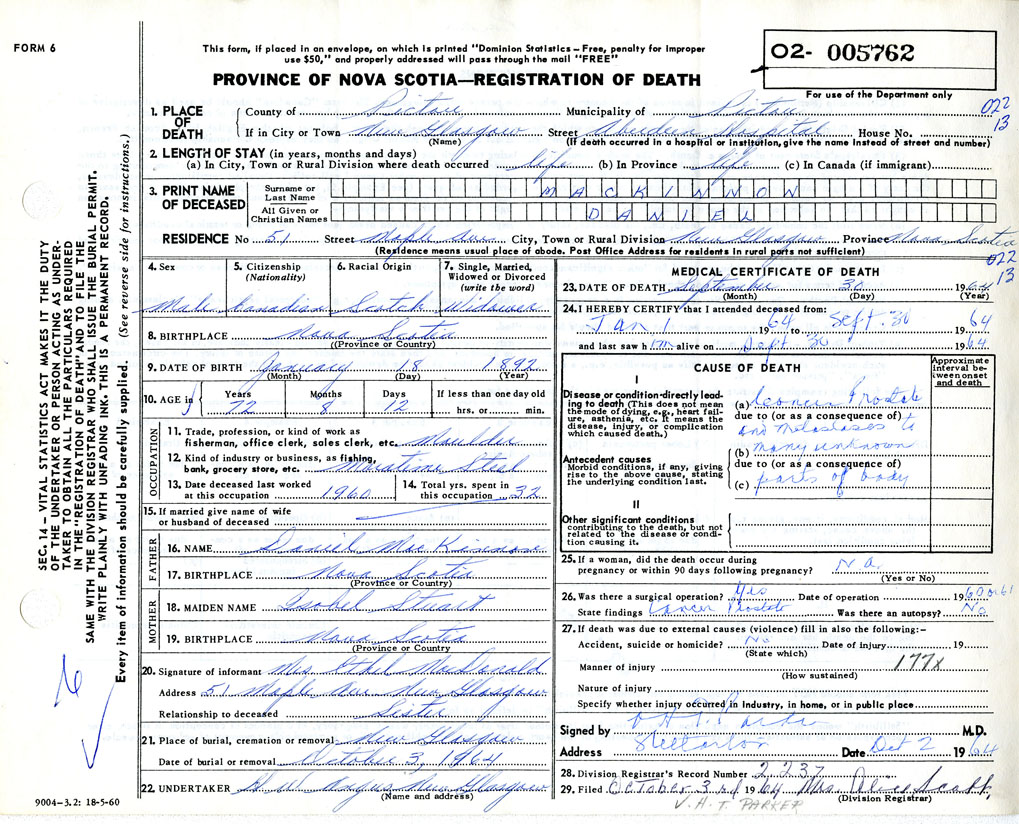 FORM 6
This form, if placed in an envelope, on which is printed "Dominion Statistics – Free, penalty for improper
use $50," and properly addressed will pass through the mail "FREE"
PROVINCE OF NOVA SCOTIA—REGISTRATION OF DEATH
O2- 005762
For use of the Department only
022
13
1. PLACE OF DEATH
County of Pictou Municipality of Pictou
If in City or Town New Glasgow Street Aberdeen Hospital House No.
(Name) (If death occurred in a hospital or institution, give the name instead of street and number)
2. LENGTH OF STAY (in years, months and days)
(a) In City, Town or Rural Division where death occurred life (b) In Province life (c) In Canada (if immigrant)
3. PRINT NAME OF DECEASED
Surname or Last Name MACKINNON
All Given or Christian Names DANIEL
RESIDENCE No 51 Street Maple Ave City, Town or Rural Division New Glasgow Province Nova Scotia
(Residence means usual place of abode. Post Office Address for residents in rural parts not sufficient)
022
13
4. Sex
Male
5. Citizenship (Nationality)
Canadian
6. Racial Origin
Scotch
7. Single, Married, Widowed or Divorced (write the word)
Widower
8. BIRTHPLACE Nova Scotia
(Province or Country)
9. DATE OF BIRTH January 18 1892
(Month) (Day) (Year)
10. AGE in Years Months Days If less than one day old
72 8 12 hrs. or min.
OCCUPATION
11. Trade, profession, or kind of work as
fisherman, office clerk, sales clerk, etc. Moulder
12. Kind of industry or business, as fishing,
bank, grocery store, etc. Maratime Steel
13. Date deceased last worked
at this occupation 1960
14. Total yrs. spent in
this occupation 32
15. If married give name of wife
or husband of deceased
FATHER
16. NAME Daniel MacKinnon
17. BIRTHPLACE Nova Scotia
(Province or Country)
MOTHER
18. MAIDEN NAME Isobel Stuart
19. BIRTHPLACE Nova Scotia
(Province or Country)
20. Signature of informant Mrs. Ethel MacDonald
Address 51 Maple Ave New Glasgow
Relationship to deceased Sister
21. Place of burial, cremation or removal New Glasgow
Date of burial or removal October 3, 1964
22. UNDERTAKER H. W. Angus New Glasgow
(Name and address)
MEDICAL CERTIFICATE OF DEATH
23. DATE OF DEATH September 30 1964
(Month) (Day) (Year)
24. I HEREBY CERTIFY that I attended deceased from:
Jan 1 1964 to Sept. 30 1964
and last saw him alive on Sept 30 1964
CAUSE OF DEATH
Approximate interval between onset and death
I
Disease or condition directly leading to death (This does not mean the mode of dying, e.g., heart failure, asthenia, etc. It means the disease, injury, or complication which caused death.)
(a) Cancer Prostate
due to (or as a consequence of)
and metastases to
Antecedent causes
Morbid conditions, if any, giving rise to the above cause, stating the underlying condition last.
(b) many unknown
due to (or as a consequence of)
(c) parts of body
II
Other significant conditions
contributing to the death, but not related to the disease or condition causing it.
25. If a woman, did the death occur during
pregnancy or within 90 days following pregnancy? Na.
(Yes or No)
26. Was there a surgical operation? Yes Date of operation 1960 or 61
State findings Cancer Prostate Was there an autopsy? No
27. If death was due to external causes (violence) fill in also the following:–
Accident, suicide or homicide? No Date of injury 19
(State which)
Manner of injury 177X
(How sustained)
Nature of injury
Specify whether injury occurred in Industry, in home, or in public place
Signed by V.H.T. Parker M.D.
Address Stellarton Date Oct 2 1964
28. Division Registrar's Record Number 2237
29. Filed October 3rd 1964 Mrs. Alice Scott
(Division Registrar)
V.H.T. PARKER
SEC. 14 – VITAL STATISTICS ACT MAKES IT THE DUTY
OF THE UNDERTAKER OR PERSON ACTING AS UNDER-
TAKER TO OBTAIN ALL THE PARTICULARS REQUIRED
IN THE "REGISTRATION OF DEATH" AND TO FILE THE
SAME WITH THE DIVISION REGISTRAR WHO SHALL ISSUE THE BURIAL PERMIT.
WRITE PLAINLY WITH UNFADING INK. THIS IS A PERMANENT RECORD.
Every item of information should be carefully supplied. (See reverse side for instructions.)
9004–3.2: 18-5-60